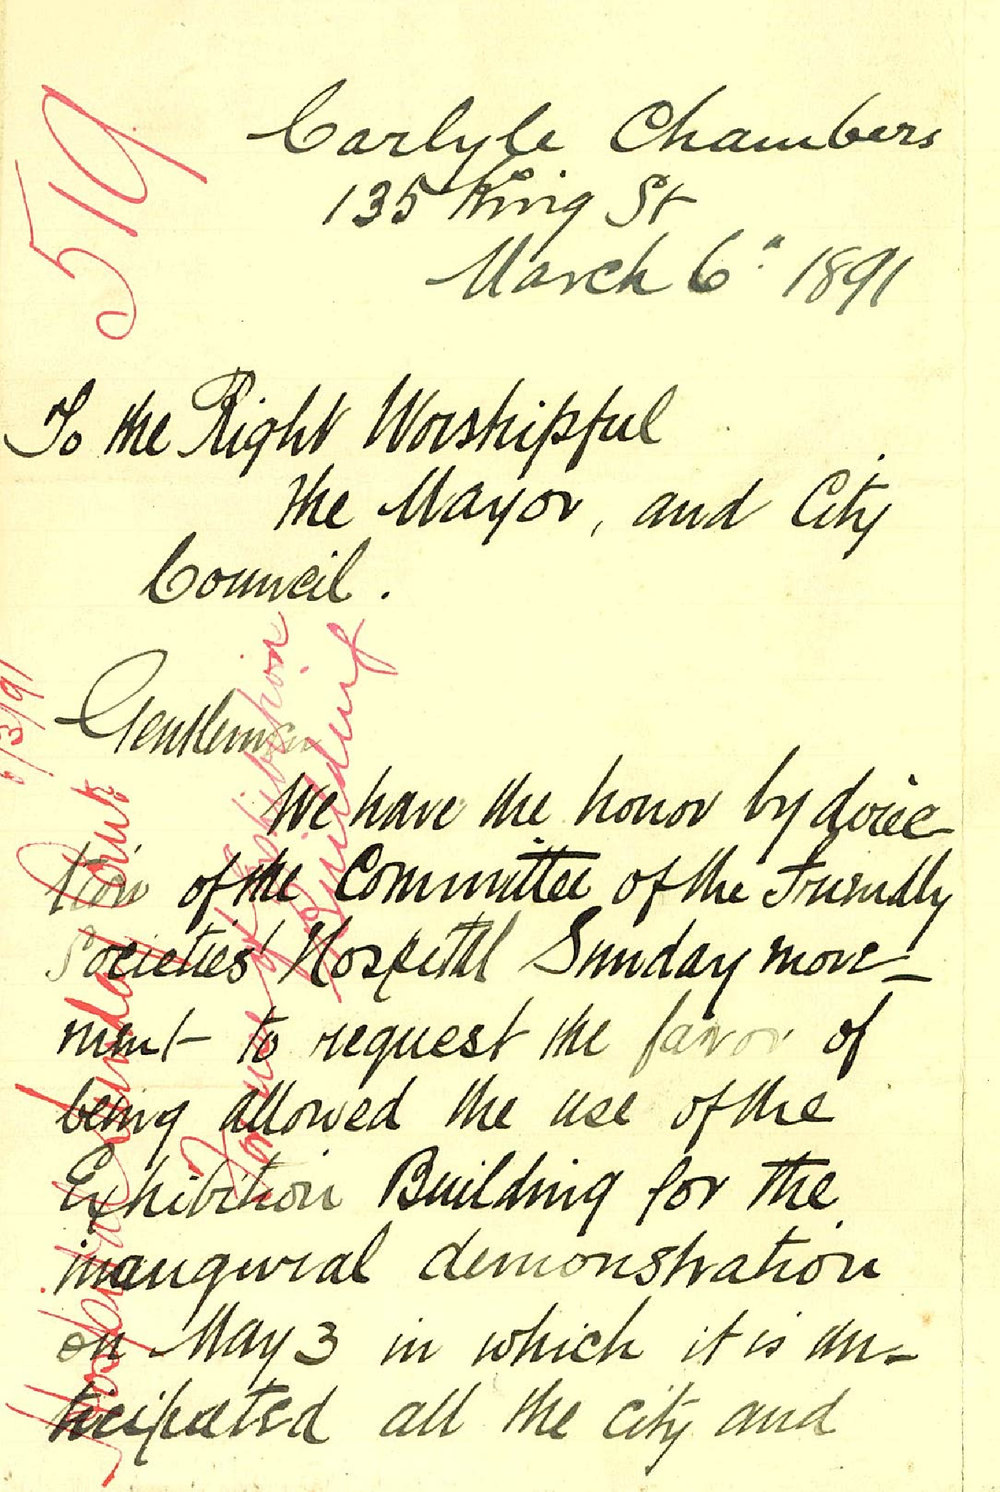 519
Carlyle Chambers
135 King St
March 6" 1891
To the Right Worshipful
the Mayor, and City
Council.
Gentlemen
We have the honor by direc
tion of the Committee of the Friendly
Societies' Hospital Sunday move-
ment to request the favor of
being allowed the use of the
Exhibition Building for the
inaugural demonstration
on May 3 in which it is an-
ticipated all the city and
6/3/91
Hospital Sunday
of Exhibition
Building